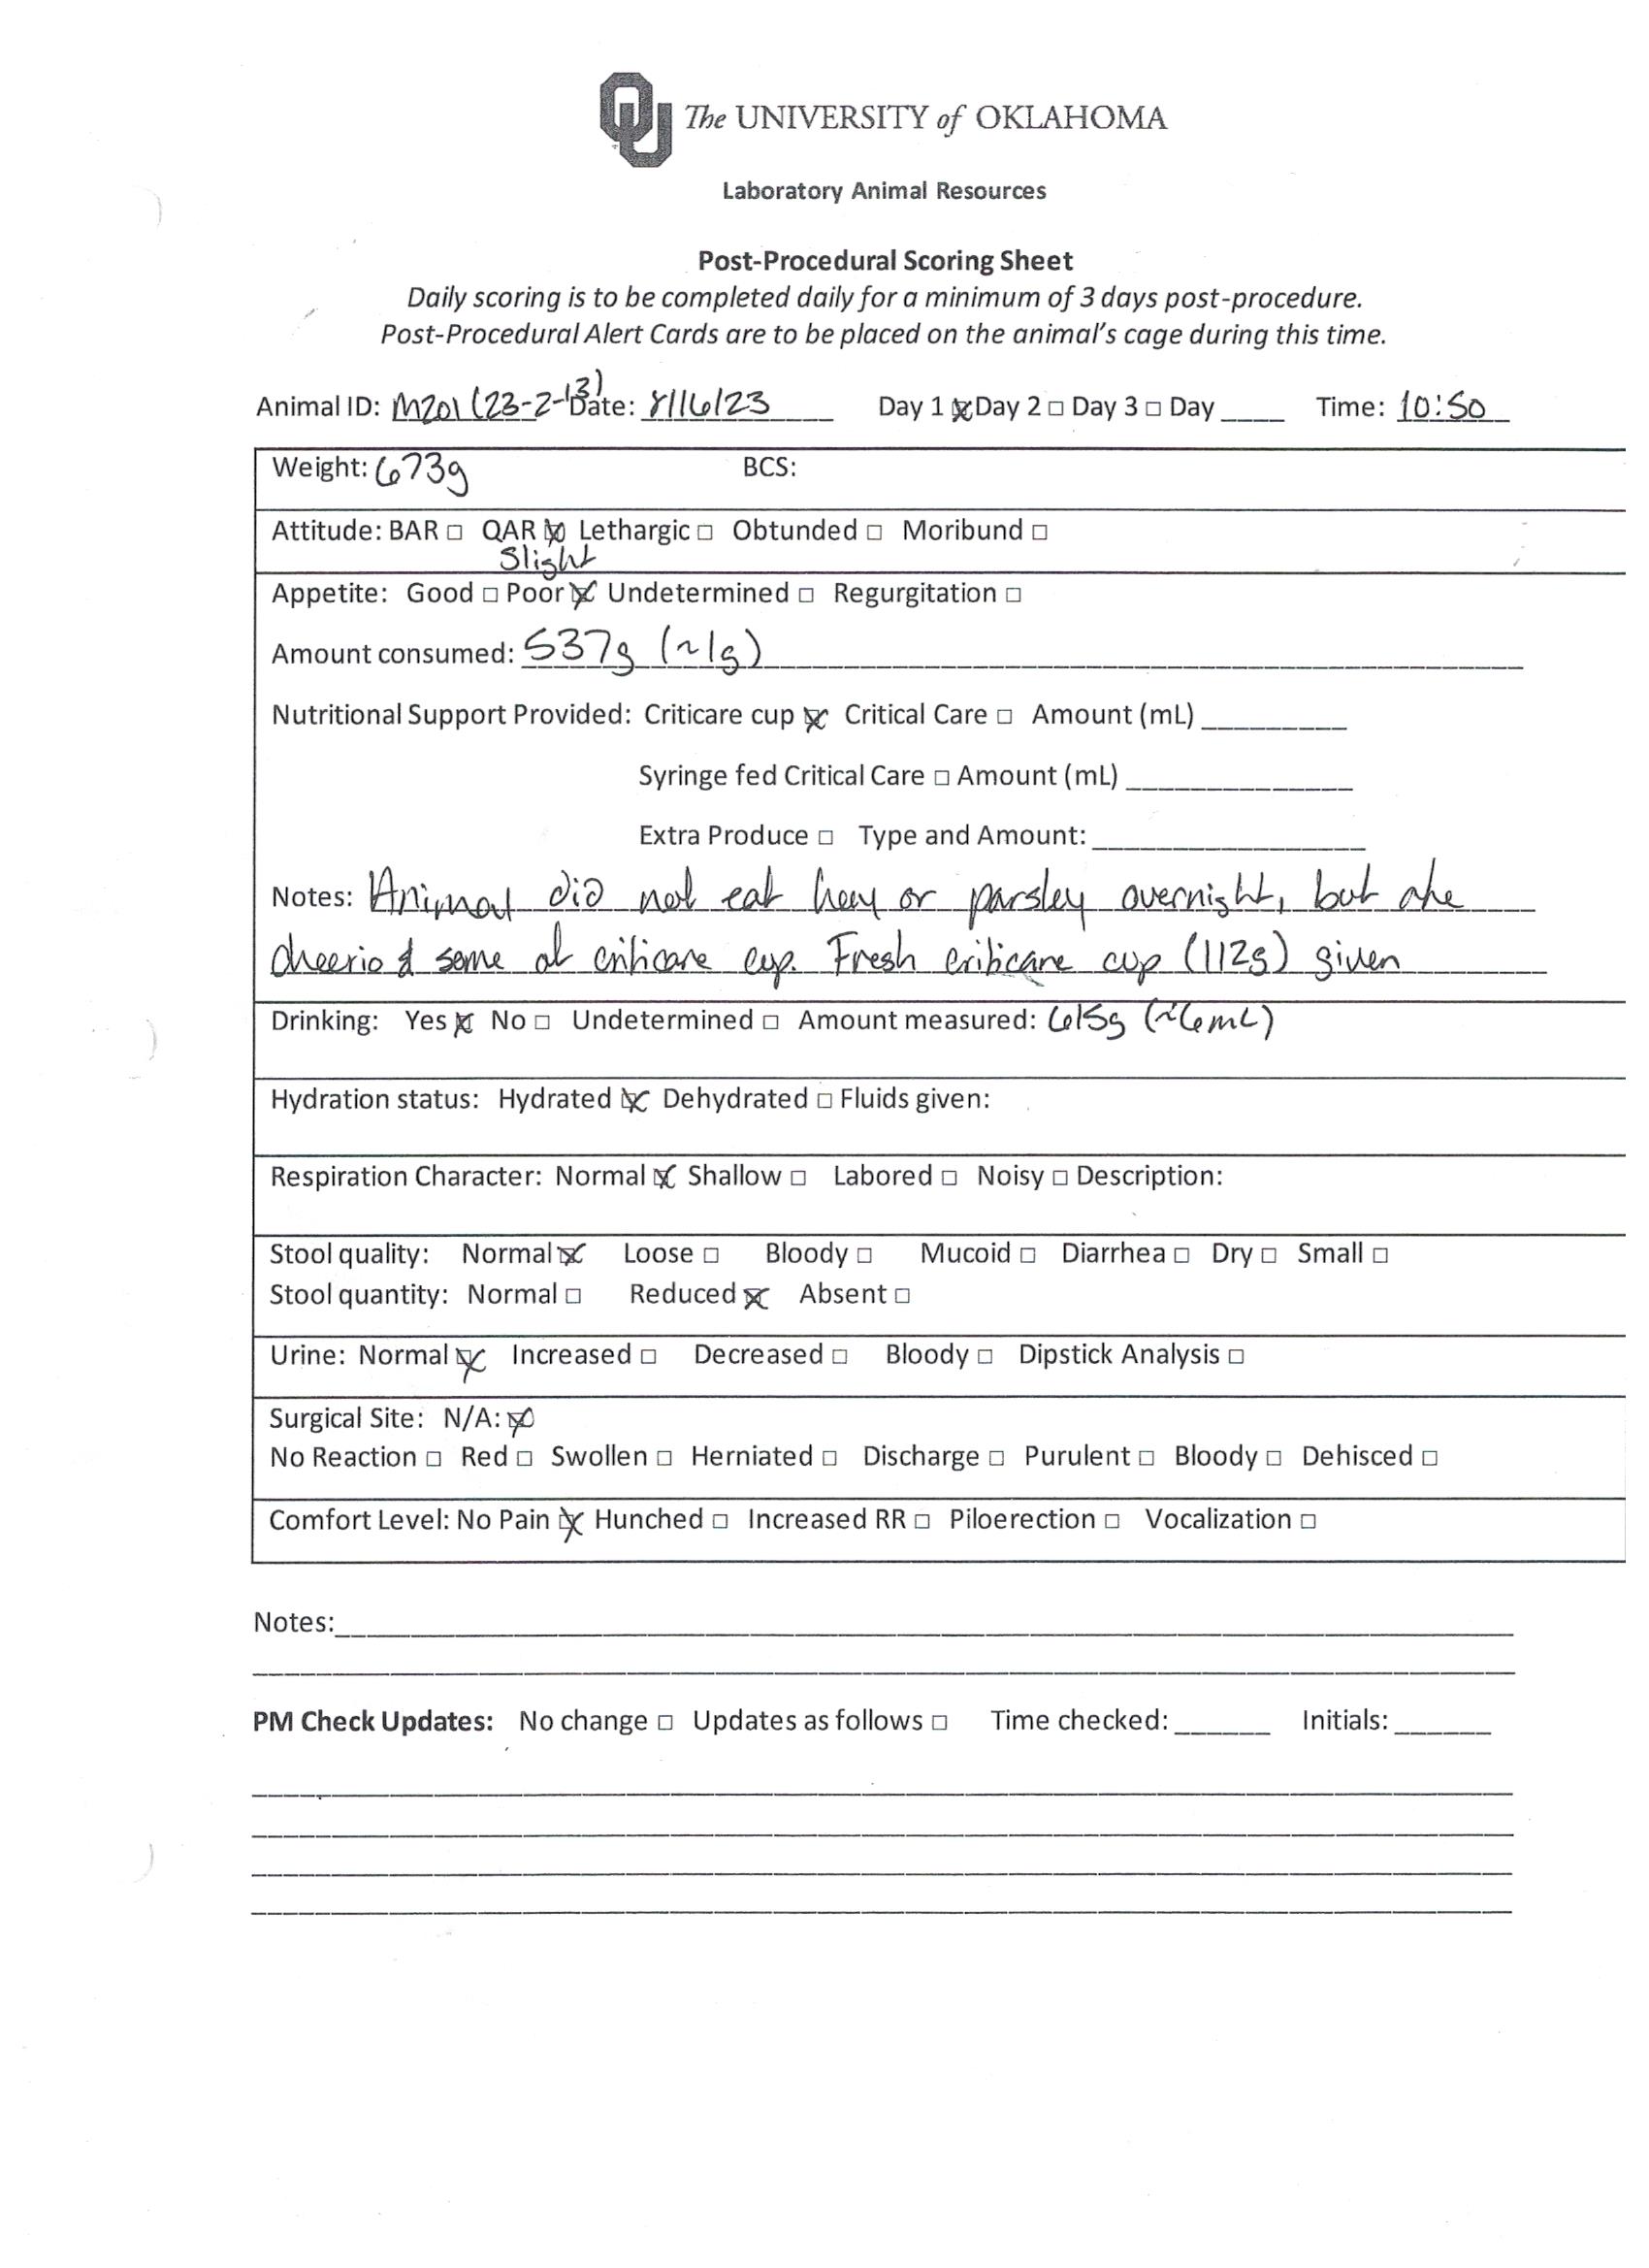 OU The UNIVERSITY of OKLAHOMA
Laboratory Animal Resources
Post-Procedural Scoring Sheet
Daily scoring is to be completed daily for a minimum of 3 days post-procedure.
Post-Procedural Alert Cards are to be placed on the animal's cage during this time.
Animal ID: M201 (23-2-13) Date: 8/16/23 Day 1 ☒ Day 2 □ Day 3 □ Day ____ Time: 10:50
Weight: 673g BCS:
Attitude: BAR □ QAR ☒ Lethargic □ Obtunded □ Moribund □
Slight
Appetite: Good □ Poor ☒ Undetermined □ Regurgitation □
Amount consumed: 537g (~1g)
Nutritional Support Provided: Criticare cup ☒ Critical Care □ Amount (mL) ____
Syringe fed Critical Care □ Amount (mL) ____
Extra Produce □ Type and Amount: ____
Notes: Animal did not eat hay or parsley overnight, but ate
cheerio & some of criticare cup. Fresh criticare cup (112g) given
Drinking: Yes ☒ No □ Undetermined □ Amount measured: 615g (~6mL)
Hydration status: Hydrated ☒ Dehydrated □ Fluids given:
Respiration Character: Normal ☒ Shallow □ Labored □ Noisy □ Description:
Stool quality: Normal ☒ Loose □ Bloody □ Mucoid □ Diarrhea □ Dry □ Small □
Stool quantity: Normal □ Reduced ☒ Absent □
Urine: Normal ☒ Increased □ Decreased □ Bloody □ Dipstick Analysis □
Surgical Site: N/A: ☒
No Reaction □ Red □ Swollen □ Herniated □ Discharge □ Purulent □ Bloody □ Dehisced □
Comfort Level: No Pain ☒ Hunched □ Increased RR □ Piloerection □ Vocalization □
Notes:
PM Check Updates: No change □ Updates as follows □ Time checked: ____ Initials: ____